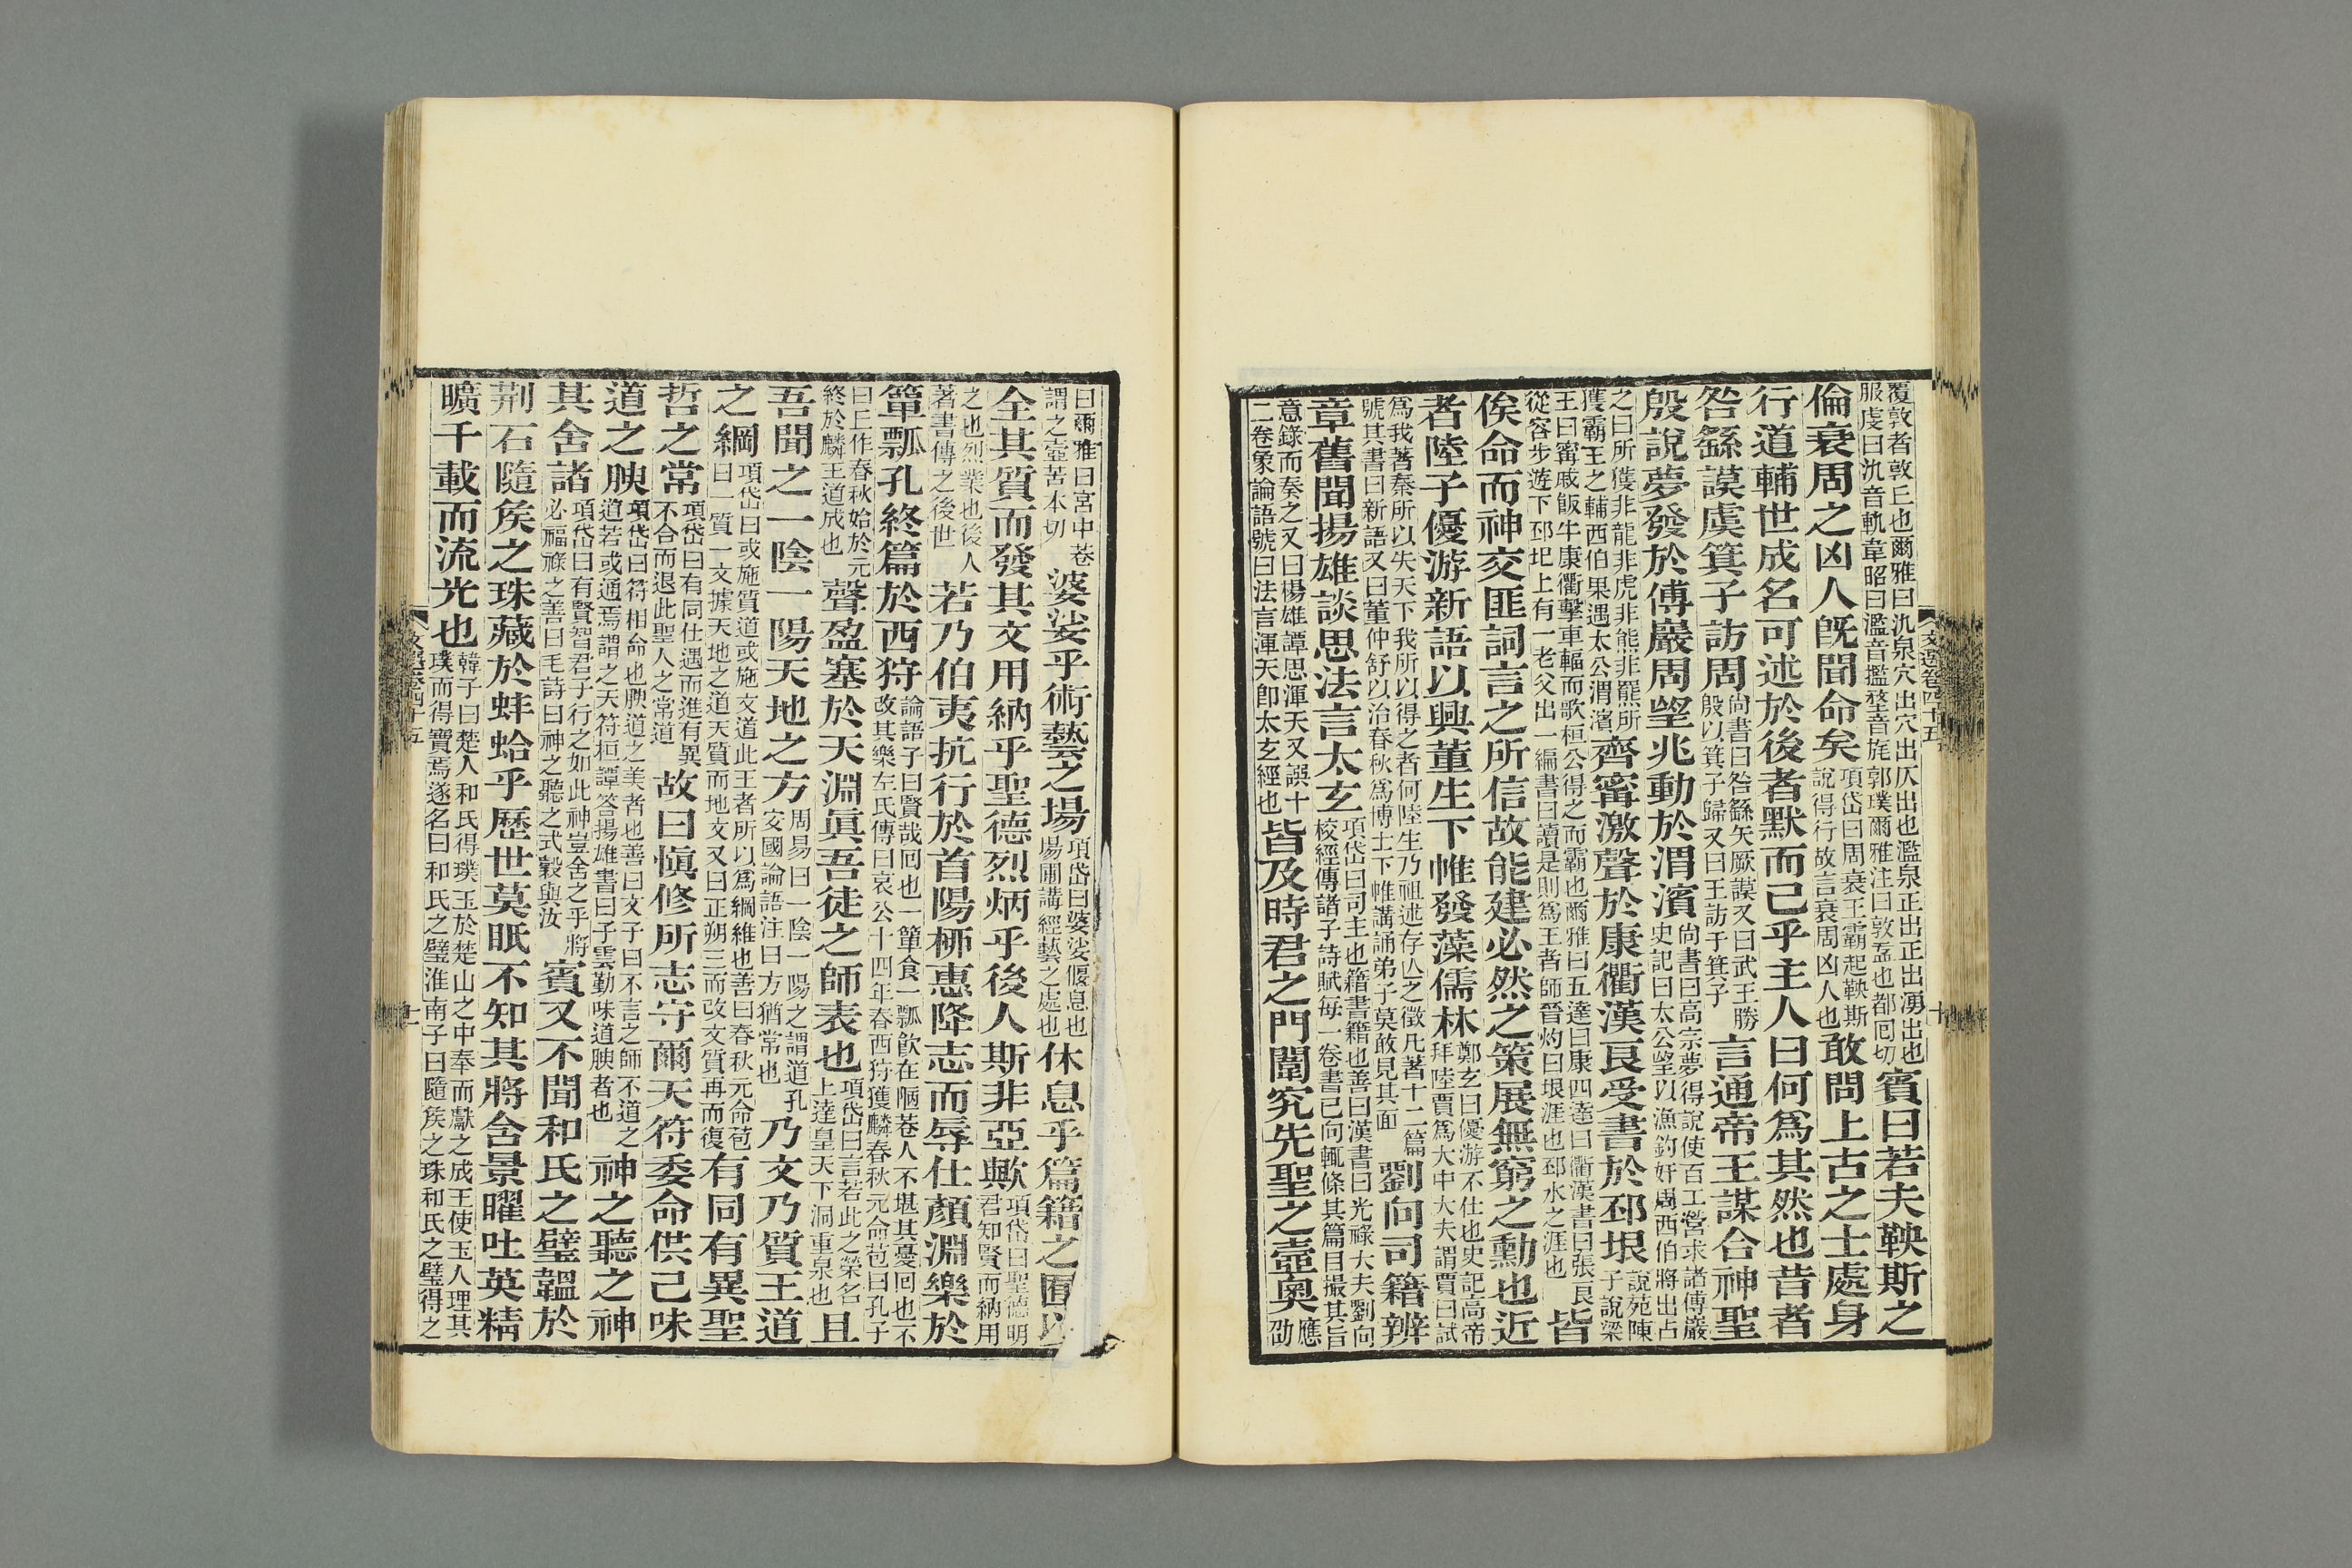 覆敦者敦丘也爾雅曰氿泉穴出穴出仄出也濫泉正出正出湧出也
服虔曰氿音軌韋昭曰濫音檻整音旄郭璞爾雅注曰敦盂也都囘切賓曰若夫鞅斯之
倫衰周之凶人旣聞命矣項岱曰周衰王霸起鞅斯說得行故言衰周凶人也敢問上古之士處身
行道輔世成名可述於後者默而已乎主人曰何爲其然也昔者
咎繇謨虞箕子訪周尙書曰咎繇矢厥謨又曰武王勝殷以箕子歸又曰王訪于箕子言通帝王謀合神聖
殷說夢發於傅巖周望兆動於渭濱尙書曰高宗夢得說使百工營求諸傅巖史記曰太公望以漁釣奸周西伯將出占
之曰所獲非龍非虎非熊非羆所獲霸王之輔西伯果遇太公渭濱齊甯激聲於康衢漢良受書於邳垠說苑陳子說梁
王曰甯戚飯牛康衢擊車輻而歌桓公得之而霸也爾雅曰五達曰康四達曰衢漢書曰張良從容步遊下邳圯上有一老父出一編書曰讀是則爲王者師晉灼曰垠涯也邳水之涯也皆
俟命而神交匪詞言之所信故能建必然之策展無窮之勳也近
者陸子優游新語以興董生下帷發藻儒林鄭玄曰優游不仕也史記高帝拜陸賈爲太中大夫謂賈曰試
爲我著秦所以失天下我所以得之者何陸生乃祖述存亾之徵凡著十二篇號其書曰新語又曰董仲舒以治春秋爲博士下帷講誦弟子莫敢見其面劉向司籍辨
章舊聞揚雄談思法言太玄項岱曰司主也籍書籍也善曰漢書曰光祿大夫劉向校經傳諸子詩賦每一卷書已向輒條其篇目撮其旨
意錄而奏之又曰楊雄譚思渾天又譔十二卷象論語號曰法言渾天卽太玄經也皆及時君之門闈究先聖之壼奥應劭
文選卷四十五
十
曰爾雅曰宮中巷謂之壼苦本切婆娑乎術藝之場項岱曰婆娑偃息也場圃講經藝之處也休息乎篇籍之囿以
全其質而發其文用納乎聖德烈炳乎後人斯非亞歟項岱曰聖德明君知賢而納用
之也烈業也後人著書傳之後世若乃伯夷抗行於首陽桺惠降志而辱仕顏淵樂於
簞瓢孔終篇於西狩論語子曰賢哉囘也一簞食一瓢飮在陋巷人不堪其憂囘也不改其樂左氏傳曰哀公十四年春西狩獲麟春秋元命苞曰孔子
曰丘作春秋始於元終於麟王道成也聲盈塞於天淵眞吾徒之師表也項岱曰言若此之榮名上達皇天下洞重泉也且
吾聞之一陰一陽天地之方周易曰一陰一陽之謂道孔安國論語注曰方猶常也乃文乃質王道
之綱項岱曰或施質道或施文道此王者所以爲綱維也善曰春秋元命苞曰一質一文據天地之道天質而地文又曰正朔三而改文質再而復有同有異聖
哲之常項岱曰有同仕遇而進有異不合而退此聖人之常道故曰愼修所志守爾天符委命供己味
道之腴項岱曰符相命也腴道之美者也善曰文子曰不言之師不道之道若或通焉謂之天符桓譚答揚雄書曰子雲勤味道腴者也神之聽之神
其舍諸項岱曰有賢智君子行之如此神豈舍之乎將必福祿之善曰毛詩曰神之聽之式穀與汝賓又不聞和氏之璧韞於
荆石隨矦之珠藏於蚌蛤乎歷世莫眂不知其將含景曜吐英精
曠千載而流光也韓子曰楚人和氏得璞玉於楚山之中奉而獻之成王使玉人理其璞而得寶焉遂名曰和氏之璧淮南子曰隨矦之珠和氏之璧得之
文選卷四十五
十一